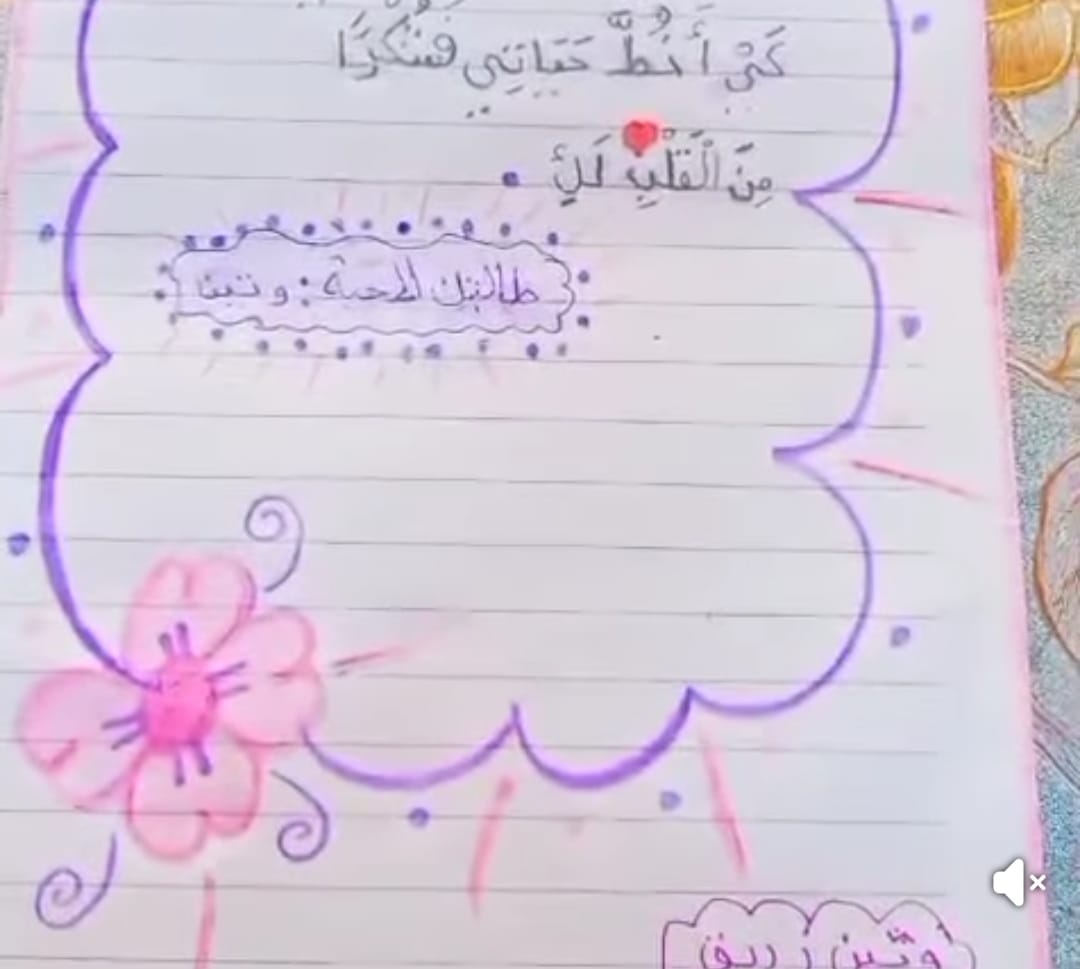 كَيْ أَخُطَّ حَيَاتِي فَشُكْرًا
مِنَ الْقَلْبِ لَكِ
طالبتك المحبة : وتينا
وتين زريق